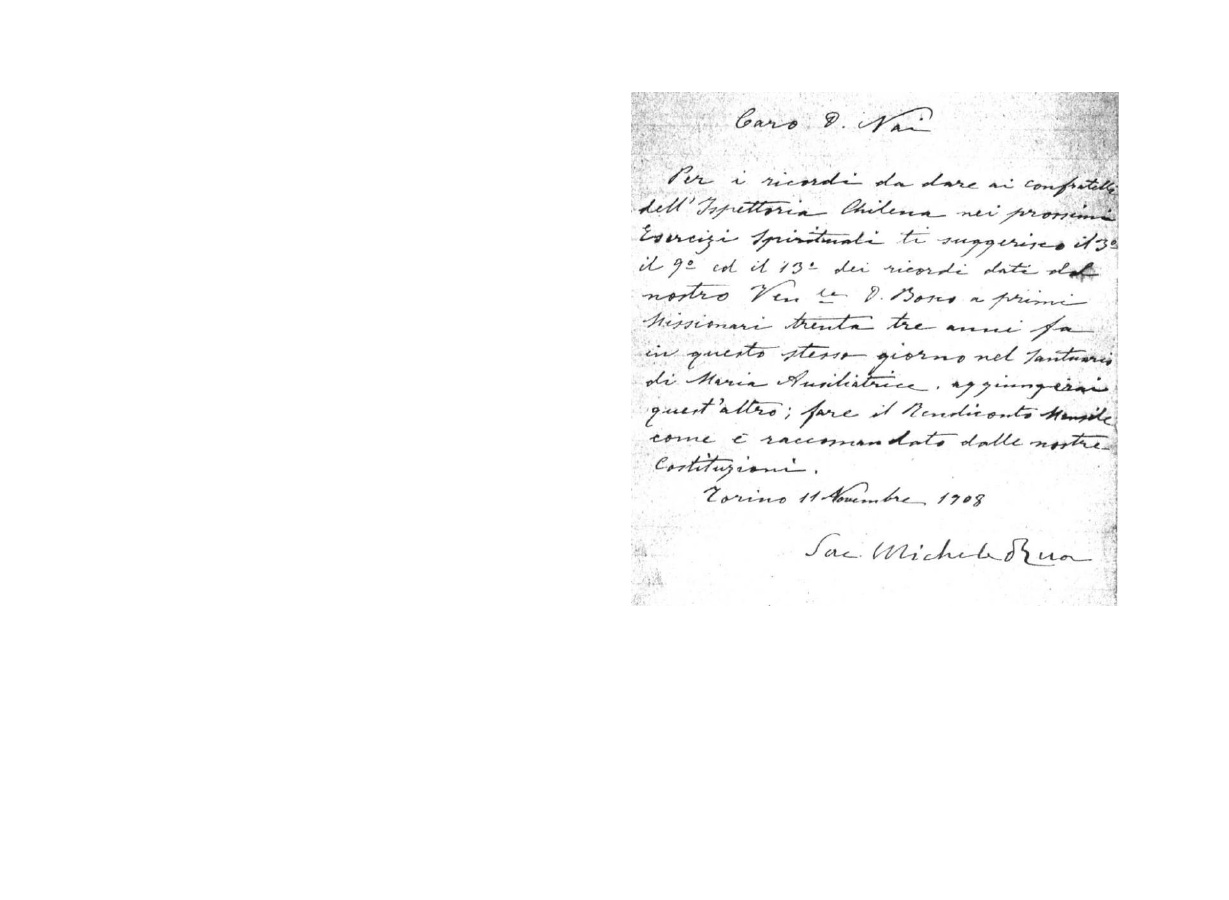 Caro D. Nai
Per i ricordi da dare ai confratelli
dell'Ispettoria Chilena nei prossimi
Esercizi Spirituali ti suggerisco il 3º
il 9º ed il 13º dei ricordi dati dal
nostro Ven le D. Bosco a primi
Missionari trenta tre anni fa
in questo stesso giorno nel Santuario
di Maria Ausiliatrice. aggiungerai
quest'altro; fare il Rendiconto Mensile
come è raccomandato dalle nostre
Costituzioni.
Torino 11 Novembre 1908
Sac. Michele Rua